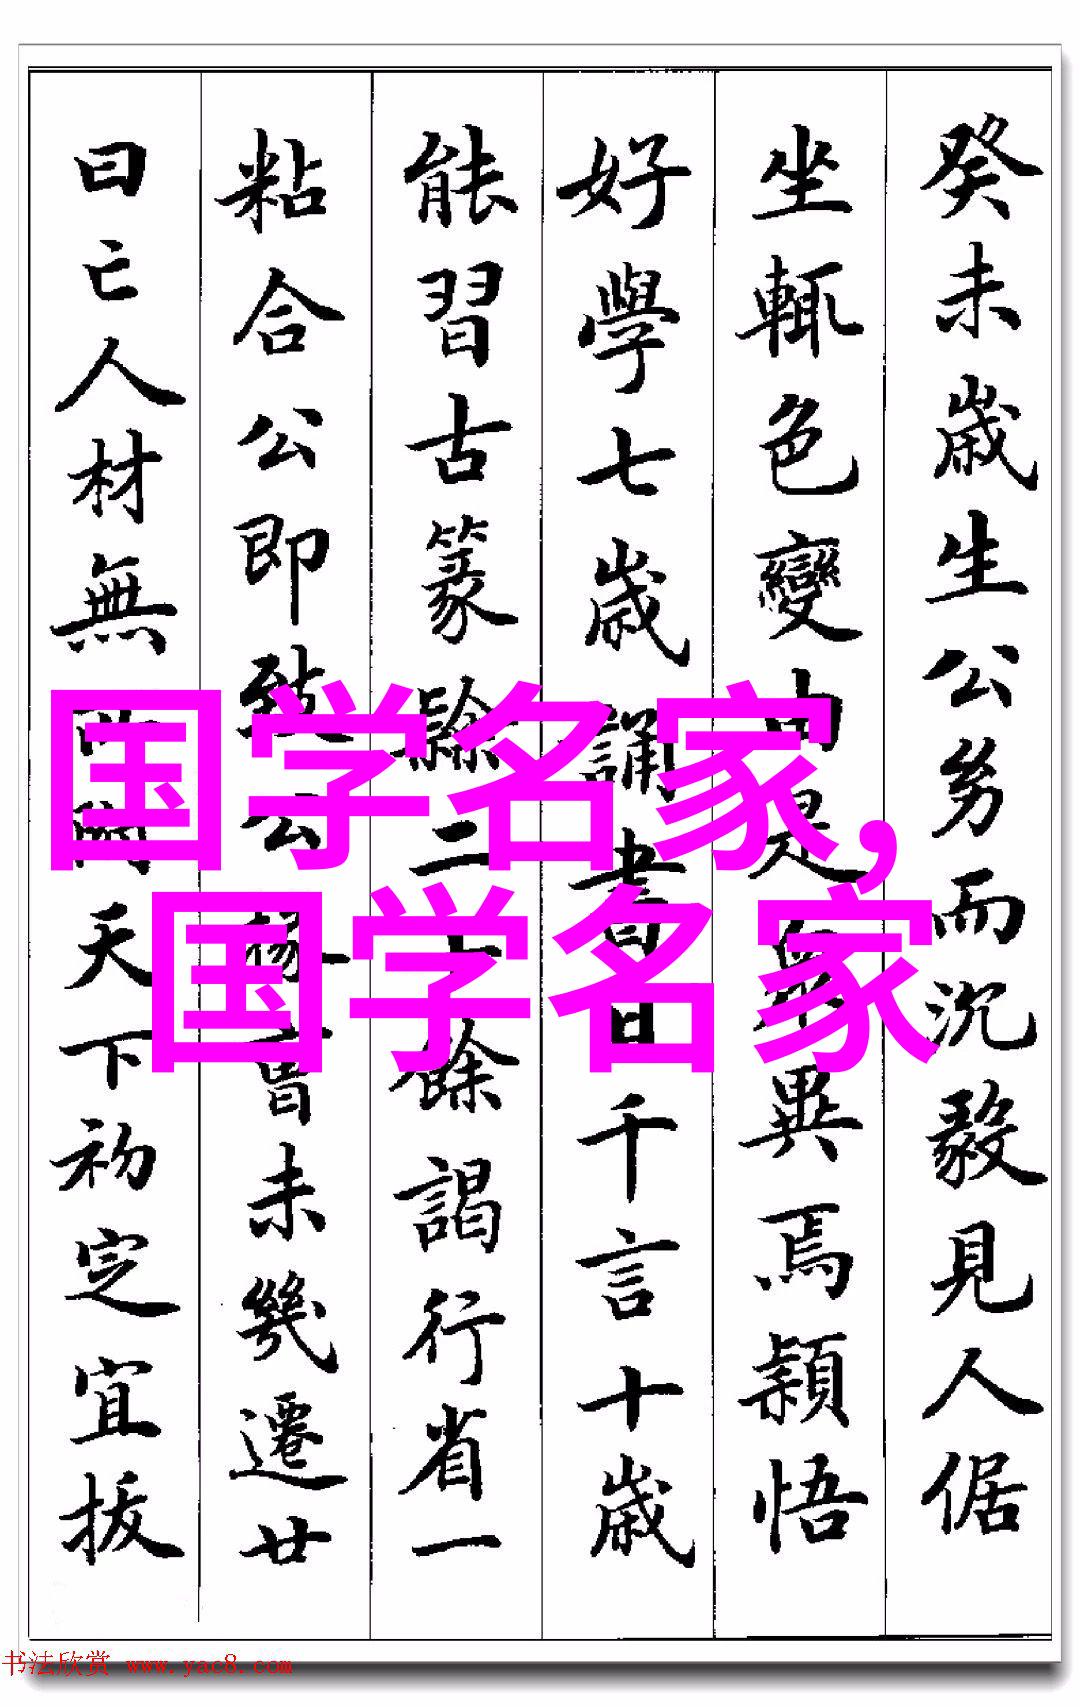 癸未歲生公幼而沉毅見人倨
坐輒色變由是衆異焉穎悟
好學七歲誦書日千言十歲
能習古篆隸二十餘謁行省一
粘合公即致公掾曹未幾遷廿
曰亡人材無天下初定宜拔
国学名家,
国学名家
书法欣赏 www.yac8.com